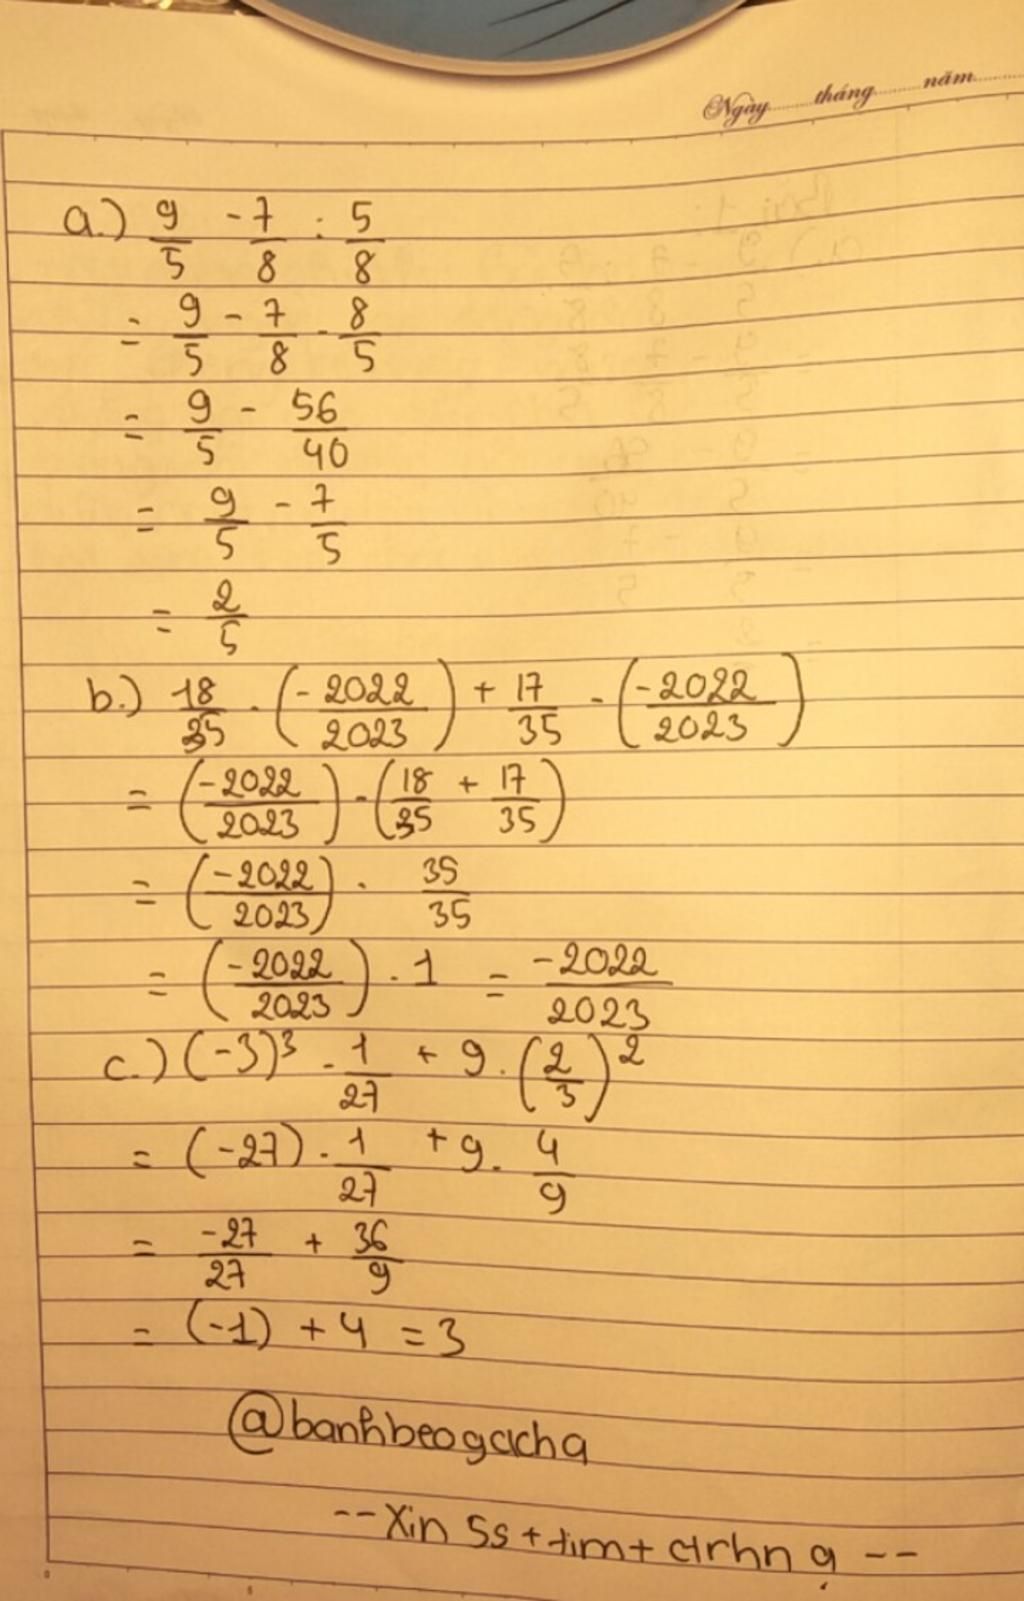 Ngày........tháng........năm........
a.) 9/5 - 7/8 : 5/8
= 9/5 - 7/8 . 8/5
= 9/5 - 56/40
= 9/5 - 7/5
= 2/5
b.) 18/35 . (-2022/2023) + 17/35 . (-2022/2023)
= (-2022/2023) . (18/35 + 17/35)
= (-2022/2023) . 35/35
= (-2022/2023) . 1 = -2022/2023
c.) (-3)³ . 1/27 + 9 . (2/3)²
= (-27) . 1/27 + 9 . 4/9
= -27/27 + 36/9
= (-1) + 4 = 3
@banhbeogacha
-- Xin 5s + tim + ctrhn ạ --